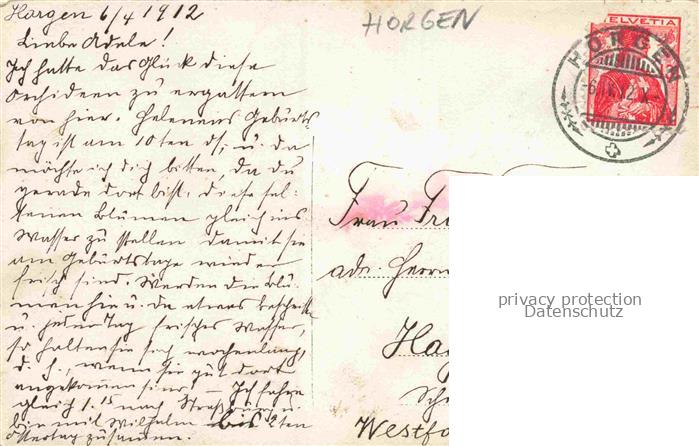 Horgen 6/4 1912
HORGEN
HELVETIA
HORGEN
Liebe Adele!
Ich hatte das Glück diese
Orchideen zu ergattern
von hier. Helenens Geburts
tag ist am 10ten ds, u. da
möchte ich dich bitten, da du
gerade dort bist, diese sel-
tenen Blumen gleich ins
Wasser zu stellen damit sie
am Geburtstage wieder
frisch sind. Werden die Blu-
men hie u. da etwas beschnitten
u. jeden Tag frisches Wasser,
so halten sie sich wochenlang,
d. h., wenn sie gut dort
angekommen sind. – Ich fahre
gleich 1.15 nach Straßburg u.
bin mit Wilhelm bis 2ten
Ostertag zusammen.
Frau
adr. Herrn
Westfa
privacy protection
Datenschutz